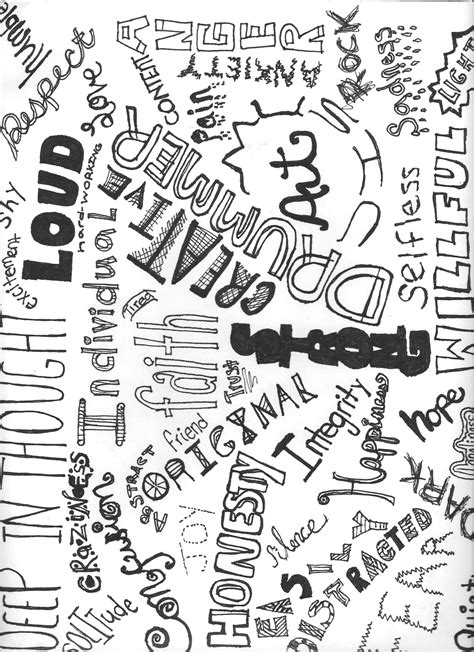 humble
Respect
Love
CONTENT
ANGER
ANXIETY
pain
ROCK
Sadness
LIGHT
shy
LOUD
hard-working
excitement
Individual
CREATIVE
DRUMMER
Art
Selfless
WILLFUL
DEEP IN THOUGHT
tired
faith
STRONG
Trust
friend
ORIGINAL
Integrity
Happiness
hope
DARK
CRAZINESS
ABSTRACT
Confusion
SOLITUDE
JOY
HONESTY
Silence
EASILY
DISTRACTED
FEAR
Quiet